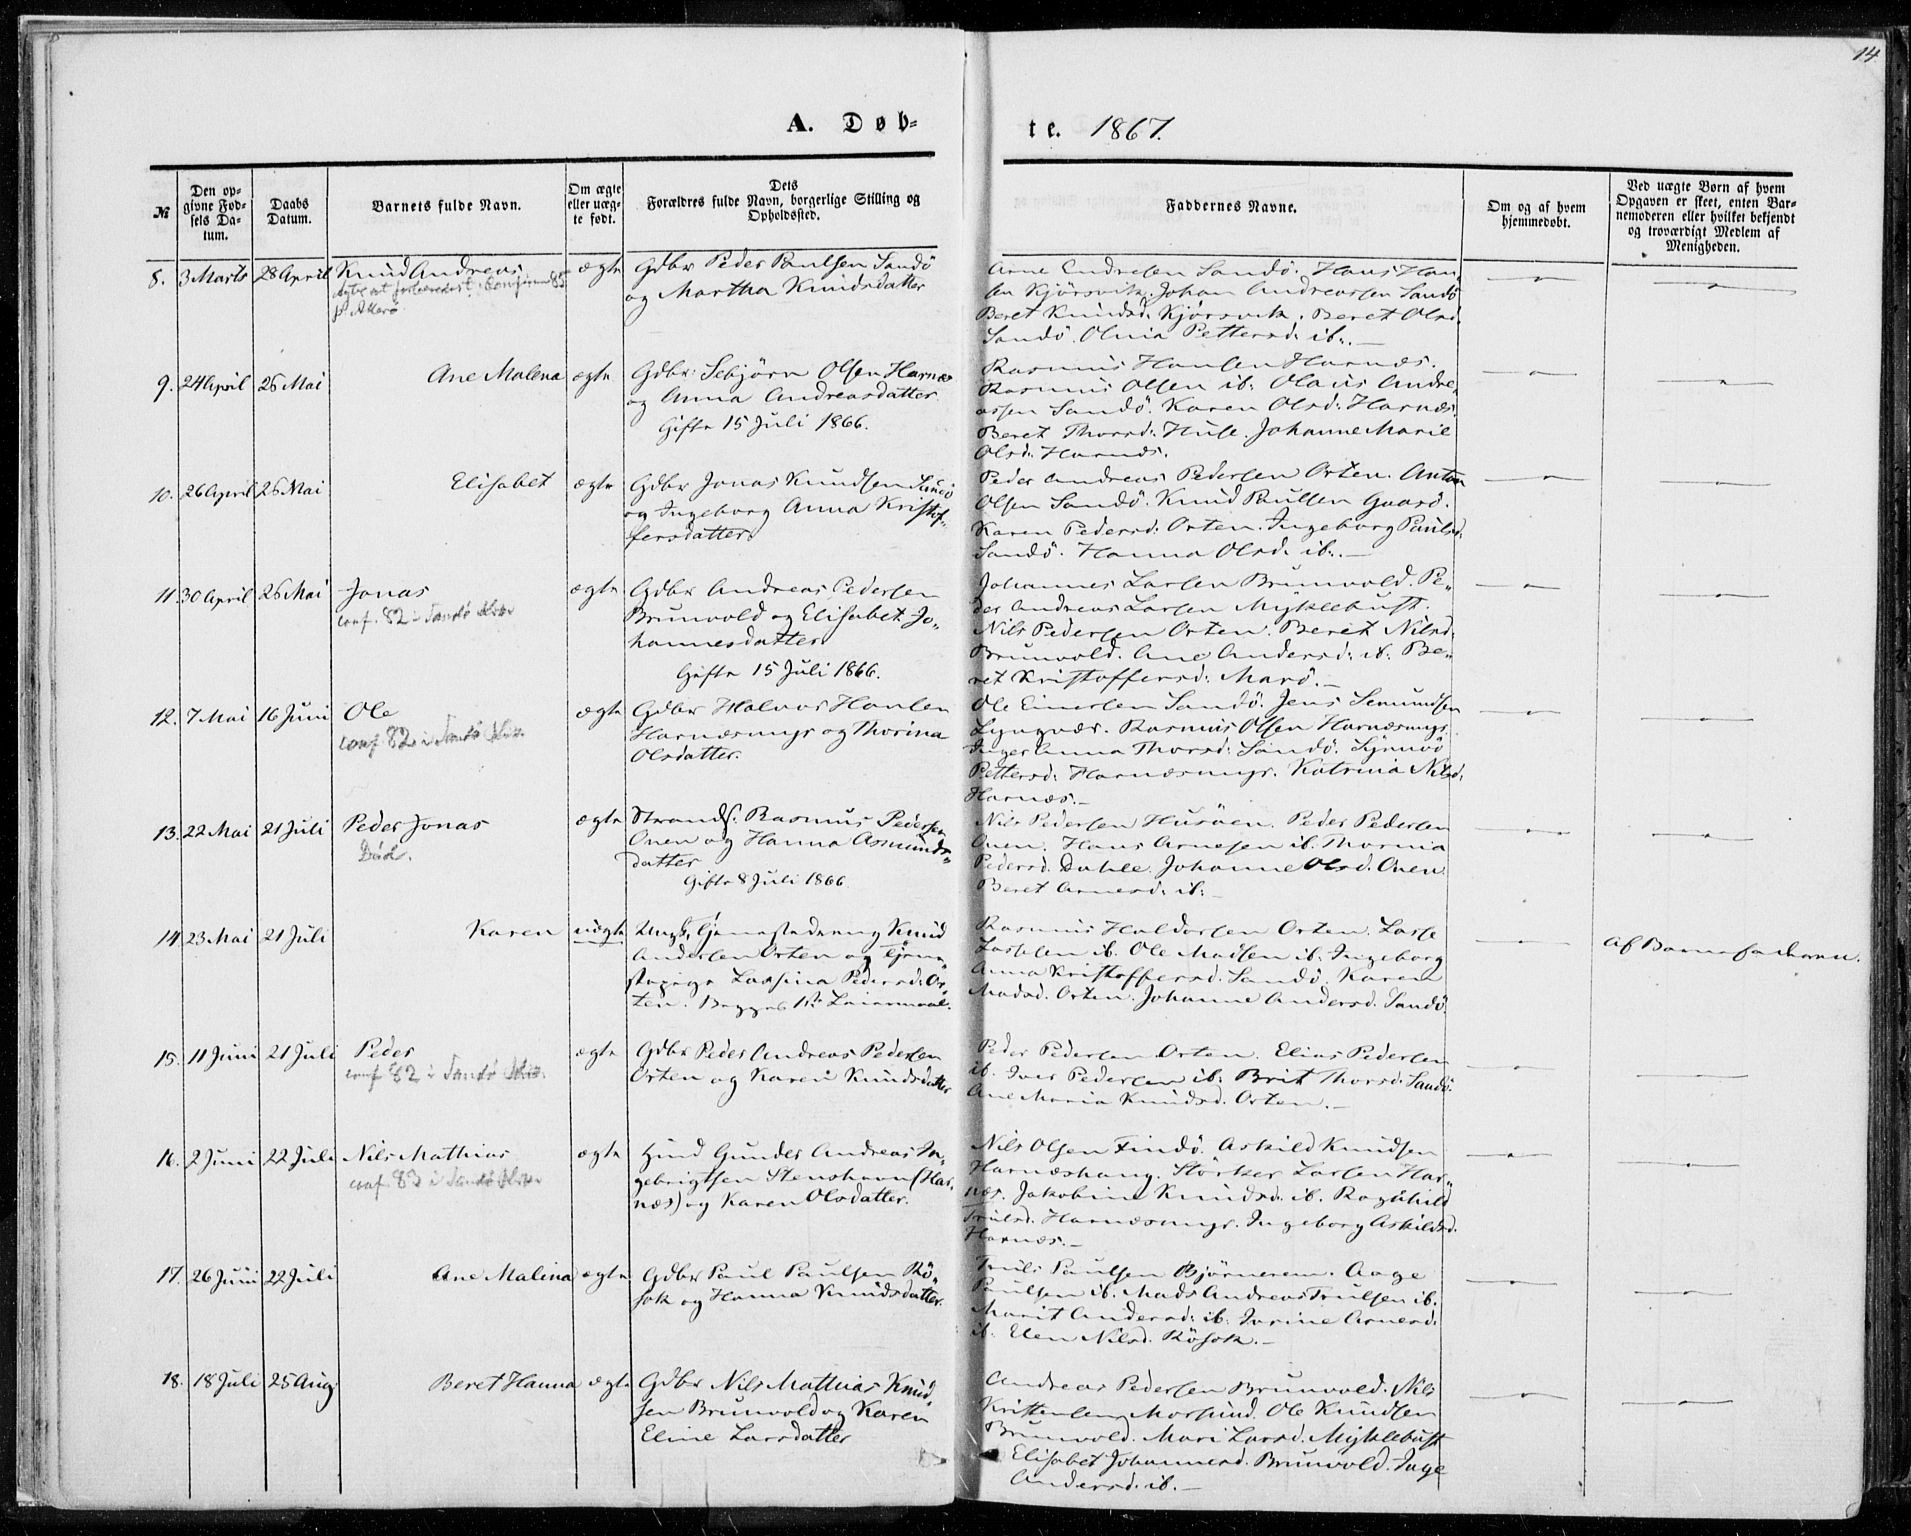 14
A. Døb-
te. 1867.
№
Den op-
givne Fød-
sels Da-
tum.
Daabs
Datum.
Barnets fulde Navn.
Om ægte
eller uæg-
te født.
Dets
Forældres fulde Navn, borgerlige Stilling og
Opholdssted.
Faddernes Navne.
Om og af hvem
hjemmedøbt.
Ved uægte Børn af hvem
Opgaven er skeet, enten Bar-
nemoderen eller hvilket bekjendt
og troværdigt Medlem af
Menigheden.
8. 3 Marts 28 April Knud Andreas ægte Gdbr Peder Paulsen Sandö
og Martha Knudsdatter
Arne Endresen Sandö. Hans Han-
sen Kjörsvik. Johan Andreassen Sandö
Beret Knudsd. Kjörsvik. Beret Olsd.
Sandö. Olina Pettersd. ib.
9. 24 April 26 Mai Ane Malena ægte Gdbr: Sebjörn Olsen Harnæs
og Anna Andreasdatter.
Gifte 15 Juli 1866.
Rasmus Hansen Harnæs.
Rasmus Olsen ib. Olaus Andre-
assen Sandö. Karen Olsd: Harnæs.
Beret Thorsd: Huse. Johanne Marie
Olsd. Harnæs.
10. 26 April 26 Mai Elisabet ægte Gdbr Jonas Knudsen Sandö
og Ingeborg Anna Kristof-
fersdatter.
Peder Andreas Pedersen Orten. Anton
Olsen Sandö. Knud Paulsen Gaarö.
Karen Pedersd: Orten. Ingeborg Paulsd.
Sandö. Hanna Olsd. ib.
11. 30 April 26 Mai Jonas ægte Gdbr Andreas Pedersen
conf. 82 i Sandö
Brunvold og Elisabet Jo-
hannesdatter
Gifte 15 Juli 1866.
Johannes Larsen Brunvold. Pe-
der Andreas Larsen Myklebust.
Nils Pedersen Orten. Beret Nilsd:
Brunvold. Ane Andersd: ib. Be-
ret Kristoffersd: Marö.
12. 7 Mai 16 Juni Ole ægte Gdbr Halvor Hansen
conf 82 i Sandö
Harnæsmyr og Thorina
Olsdatter.
Ole Einersen Sandö. Jens Semundsen
Lyngvær. Rasmus Olsen Harnæsmyr.
Inger Anna Thorsd: Sandö. Synnöv
Pettersd: Harnæsmyr. Katrina Nilsd:
Harnæs.
13. 22 Mai 21 Juli Peder Jonas ægte Strands. Rasmus Pedersen
Död.
Onen og Hanna Asmunds-
datter
Gifte 8 Juli 1866
Nils Pedersen Husöen. Peder Pedersen
Onen. Hans Arnesen ib. Thorina
Pedersd. Dahle. Johanne Olsd. Onen.
Beret Arnesd: ib:
14. 23 Mai 21 Juli Karen uægte Ungk. Tjenestedreng Knud
Andersen Orten og Tjene-
stepige Lassina Pedersd. Or-
ten. Begges 1ste Leiermaal.
Rasmus Haldorsen Orten. Lasse
Lassesen ib. Ole Madsen ib. Ingeborg
Anna Kristoffersd. Sandö. Karen
Madsd. Orten. Johanne Andersd. Sandö.
Af Barnefaderen.
15. 11 Juni 21 Juli Peder ægte Gdbr Peder Andreas Pedersen
conf 82 i Sandö
Orten og Karen Knudsdatter
Peder Pedersen Orten. Elias Pedersen
ib. Iver Pedersen ib. Brit Thorsd: Sandö.
Ane Maria Knudsd. Orten.
16. 2 Juni 22 Juli Nils Mathias ægte Hmd Gunder Andreas In-
conf. 83 i Sandö
gebrigtsen Stenshavn (Har-
næs) og Karen Olsdatter.
Nils Olsen Findö. Askild Knudsen
Harnæshaug. Störker Larsen Har-
næs. Jakobine Knudsd. ib. Ragnhild
Trulsd. Harnæsmyr. Ingeborg Askildsd.
Harnæs.
17. 26 Juni 22 Juli Ane Malina ægte Gdbr Paul Paulsen Rö-
sok og Hanna Knudsdatter.
Truls Paulsen Björnerem. Aage
Paulsen ib. Mads Andreas Trulsen ib.
Marit Andersd: ib. Jorine Arnesd:
ib. Elen Nilsd. Rösok.
18. 18 Juli 25 Aug Beret Hanna ægte Gdbr Nils Mathias Knud-
sen Brunvold og Karen
Eline Larsdatter
Andreas Pedersen Brunvold. Nils
Kristensen Morsund. Ole Knudsen
Brunvold. Mari Larsd. Myklebust
Elisabet Johannesd. Brunvold. Inge
Andersd. ib.